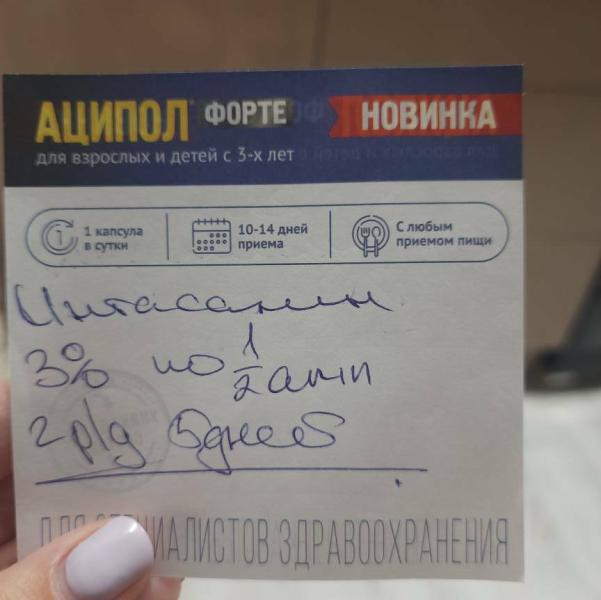 АЦИПОЛ® ФОРТЕ
НОВИНКА
для взрослых и детей с 3-х лет
1 капсула
в сутки
10-14 дней
приема
С любым
приемом пищи
3% по 1/2 амп
2 р/д 5 дней
ДЛЯ СПЕЦИАЛИСТОВ ЗДРАВООХРАНЕНИЯ